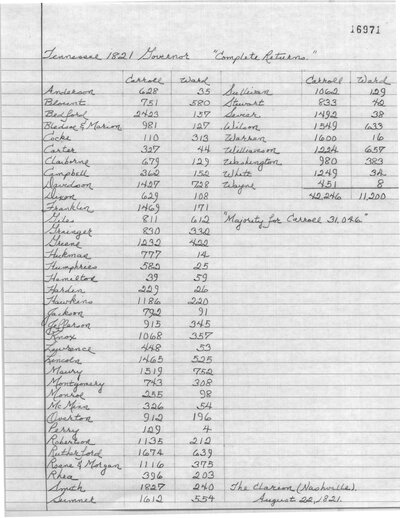 16971
Tennessee 1821 Governor "Complete Returns."
Carroll Ward Carroll Ward
Anderson 628 35 Sullivan 1062 129
Blount 751 580 Stewart 833 42
Bedford 2423 157 Sevier 1492 38
Bledsoe & Marion 981 127 Wilson 1549 633
Cocke 110 313 Warren 1600 16
Carter 327 44 Williamson 1224 657
Claiborne 679 129 Washington 980 383
Campbell 362 152 White 1249 34
Davidson 1427 728 Wayne 451 8
Dixon 629 108 42,246 11,200
Franklin 1469 171
Giles 811 612 "Majority for Carroll 31,046."
Grainger 830 332
Greene 1232 422
Hickman 777 14
Humphries 582 25
Hamilton 39 59
Harden 229 26
Hawkins 1186 220
Jackson 792 91
Jefferson 915 345
Knox 1068 357
Lawrence 448 53
Lincoln 1465 525
Maury 1519 752
Montgomery 743 308
Monroe 255 98
McMinn 326 54
Overton 912 196
Perry 129 4
Robertson 1135 212
Rutherford 1674 639
Roane & Morgan 1116 375
Rhea 396 203
Smith 1827 240 The Clarion (Nashville).
Sumner 1612 554 August 22, 1821.